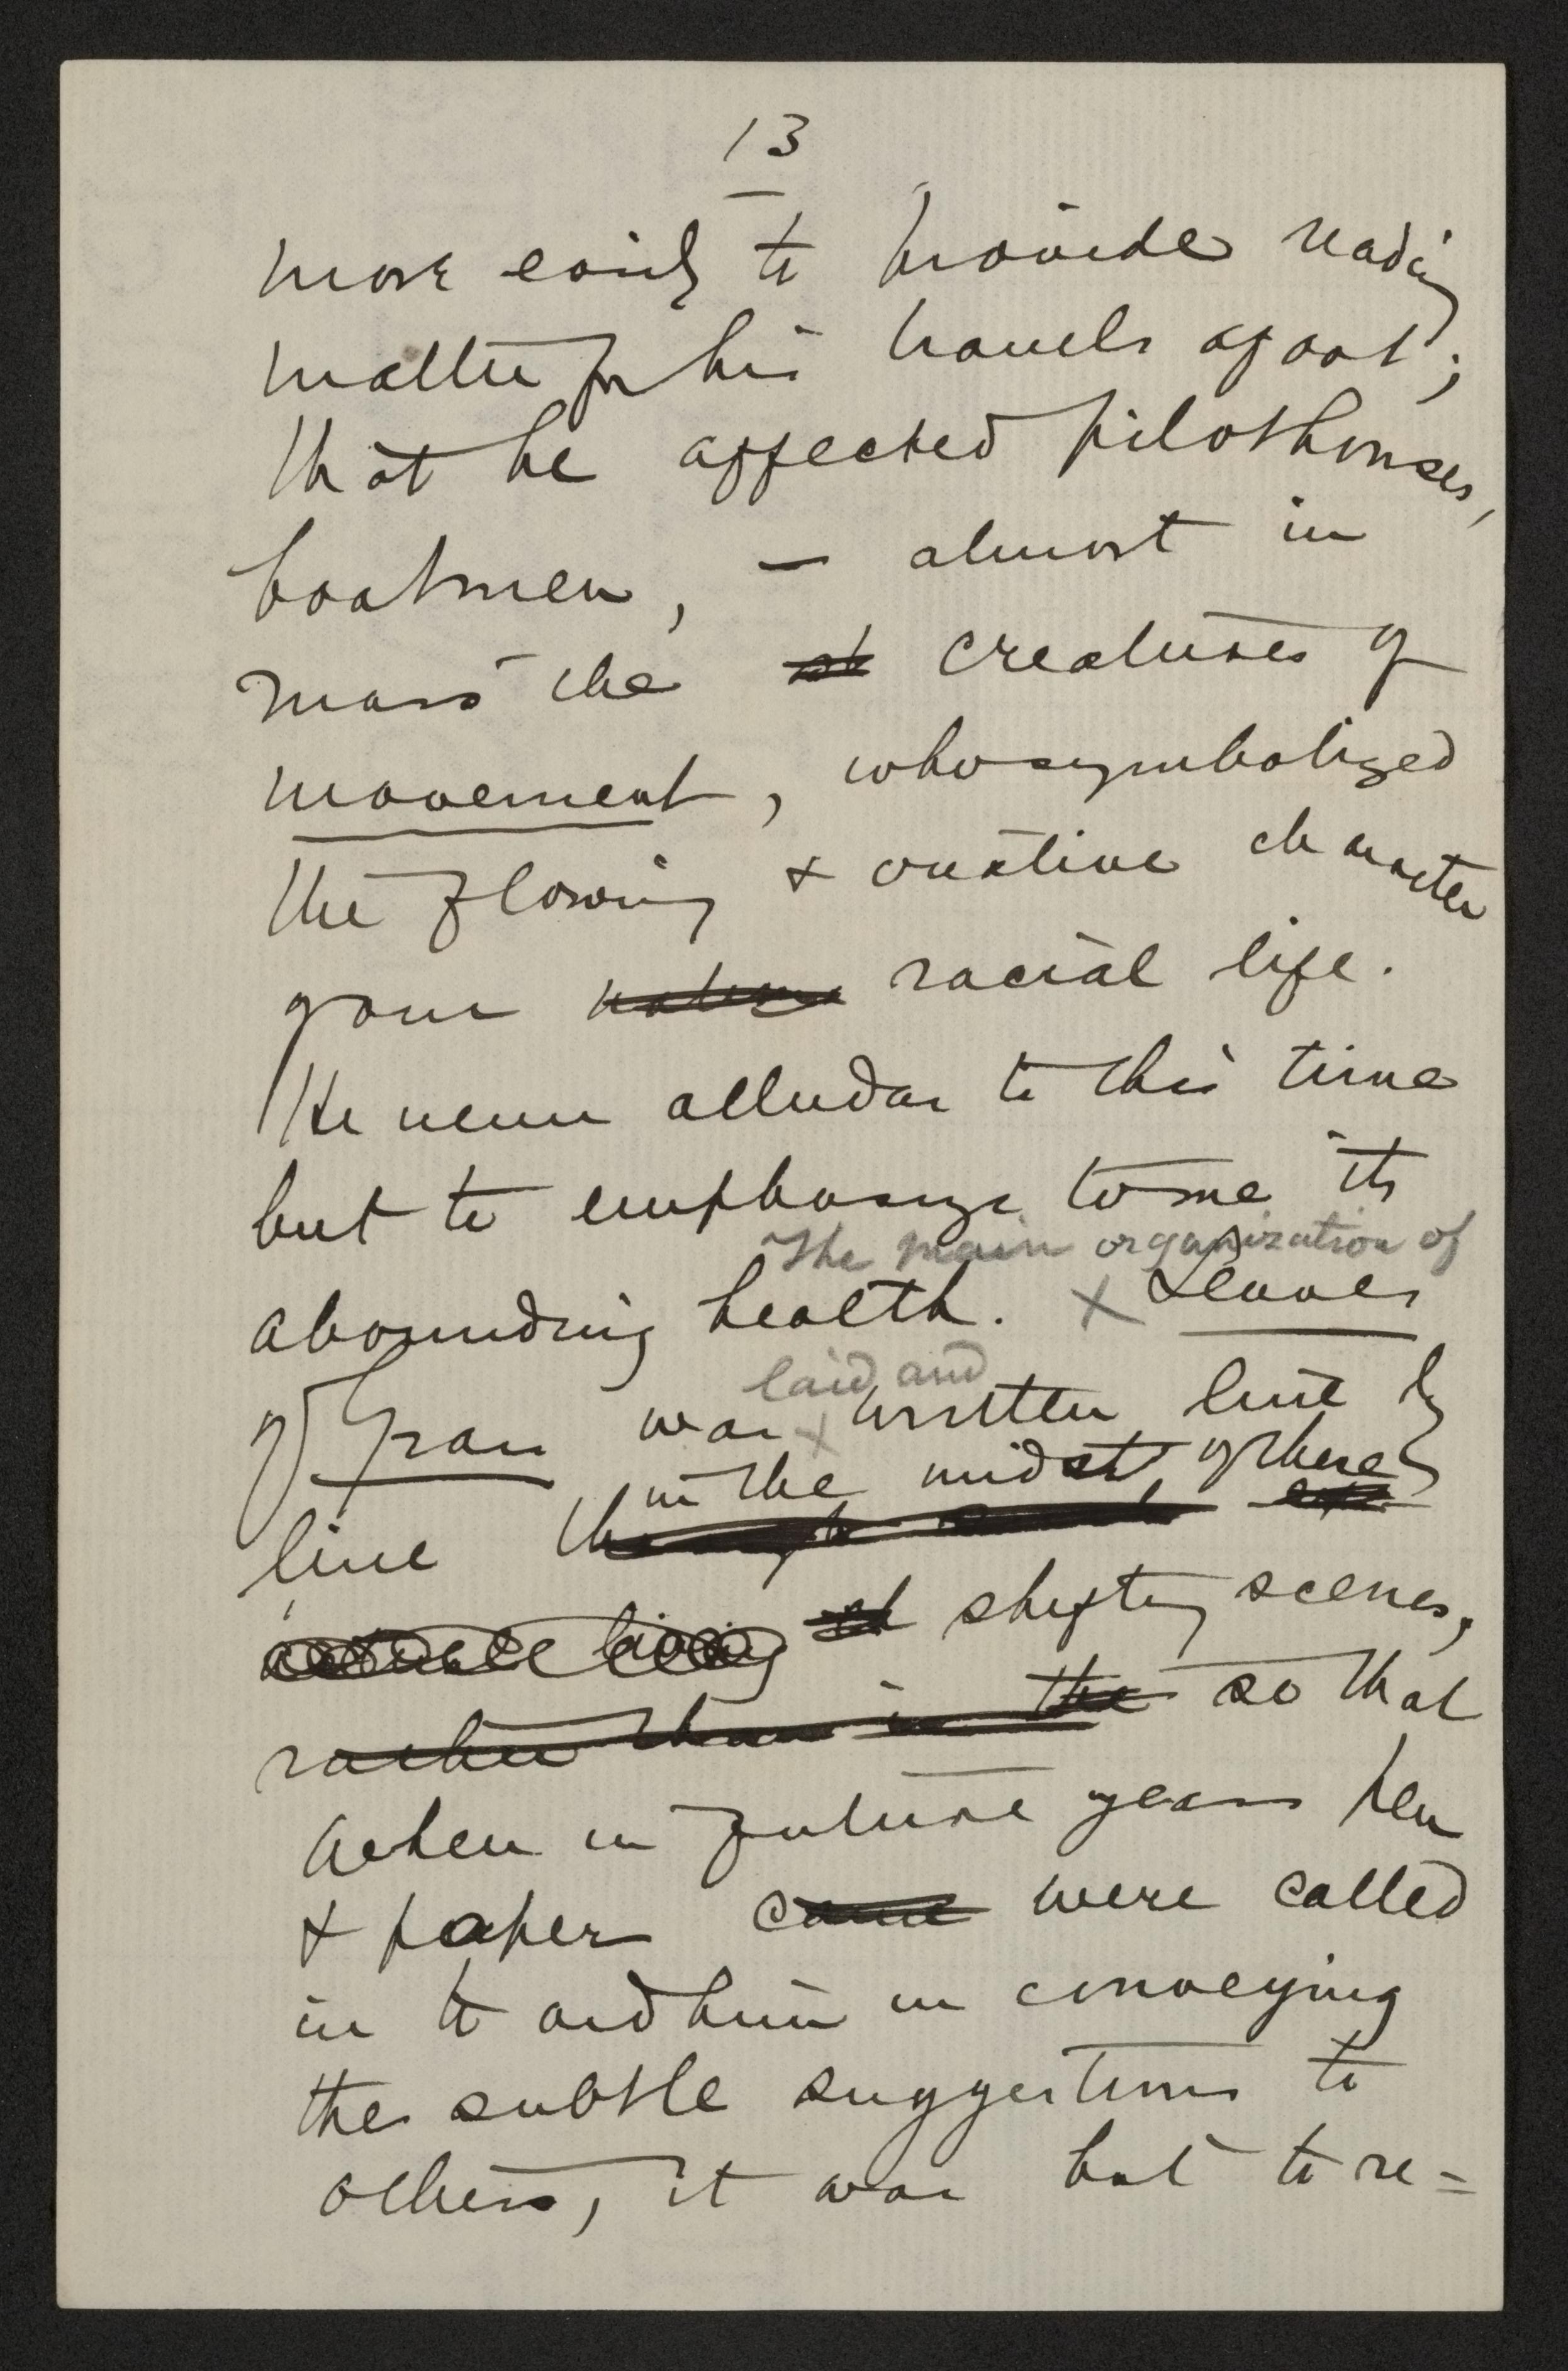 13
more easily to provide reading
matter for his travels afoot;
that he affected pilothouses,
boatmen, — almost in
mass the st creatures of
movement, who symbolized
the flowing & creative character
your nature racial life.
He never alludes to this time
but to emphasize to me its
The main organization of
abounding health. x Leaves
laid and
of Grass was x written line by
in the midst of these
line
living st shifting scenes,
rather than in the so that
when in future years pen
& paper came were called
in to aid him in conveying
the subtle suggestions to
others, it was but to re=